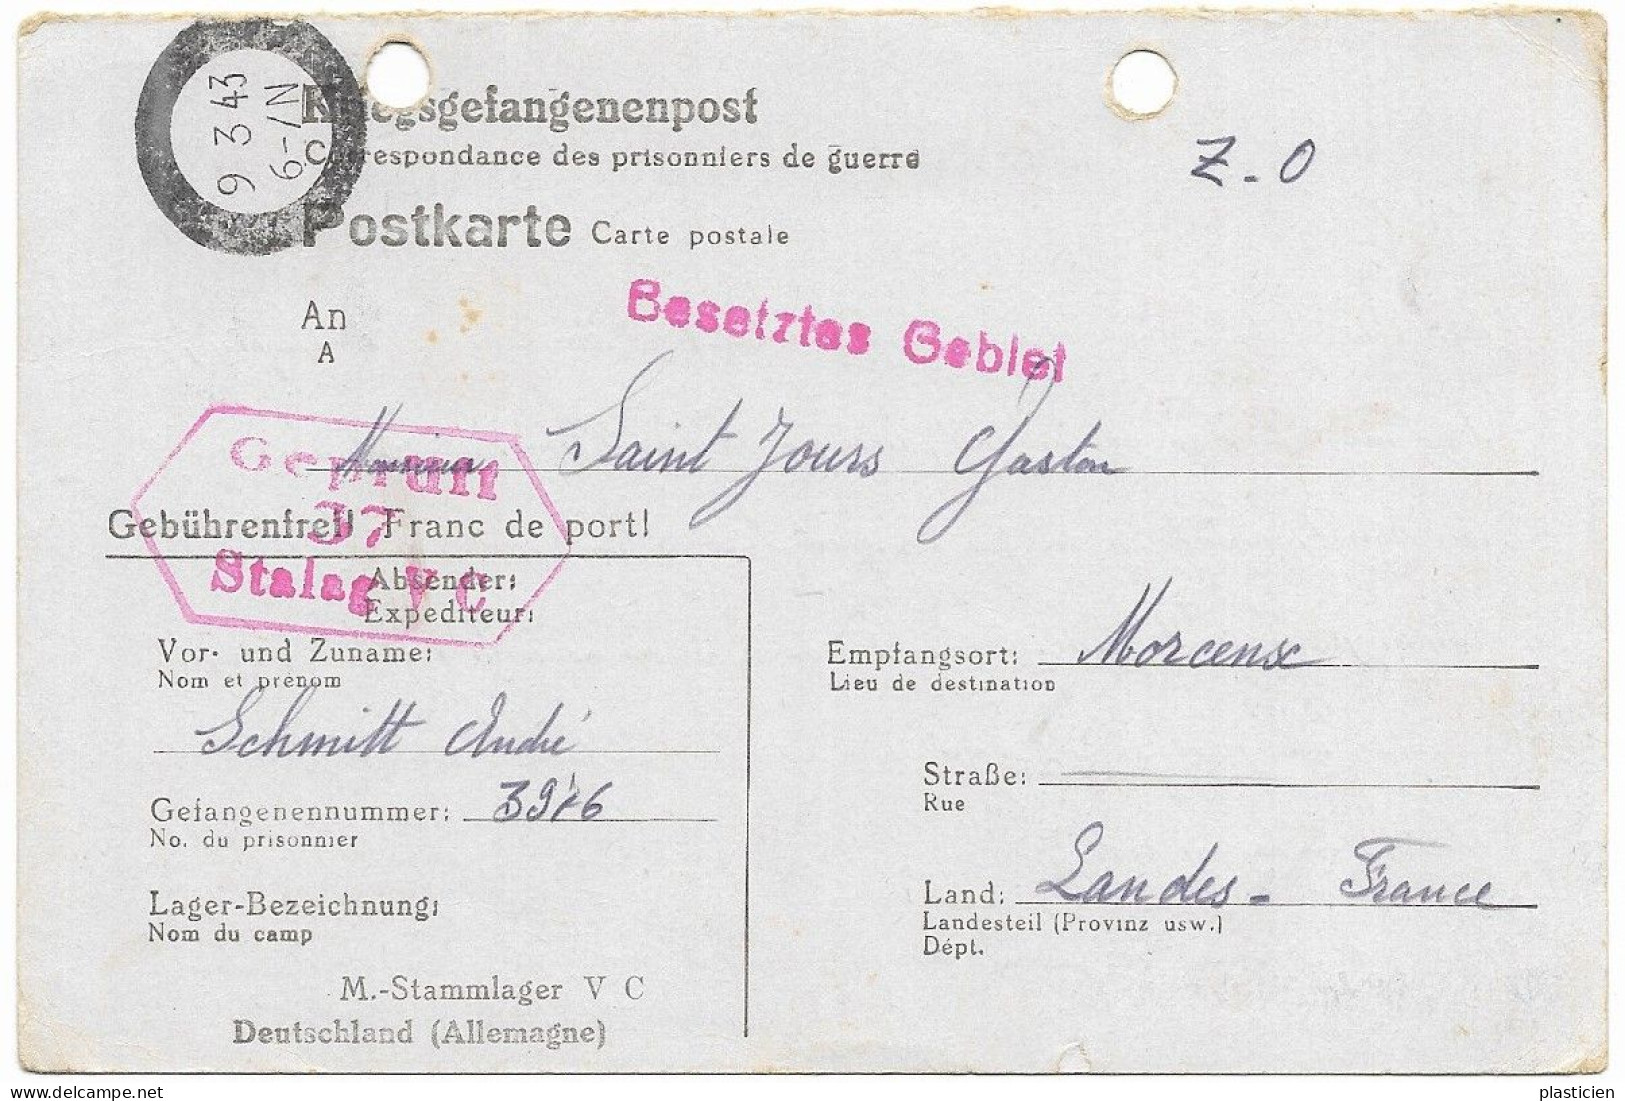 9 3 43
6-7N
Kriegsgefangenenpost
Correspondance des prisonniers de guerre
Z-0
Postkarte Carte postale
Besetztes Gebiet
An
A
Monsieur Saint Jours Gaston
Geprüft
37
Stalag V C
Gebührenfrei! Franc de port!
Absender:
Expediteur:
Vor- und Zuname:
Nom et prénom
Schmitt André
Gefangenennummer:
No. du prisonnier
Lager-Bezeichnung:
Nom du camp
M.-Stammlager V C
Deutschland (Allemagne)
Empfangsort: Morcenx
Lieu de destination
Straße:
Rue
Land: Landes - France
Landesteil (Provinz usw.)
Dépt.
https://www.delcampe.net
plasticien